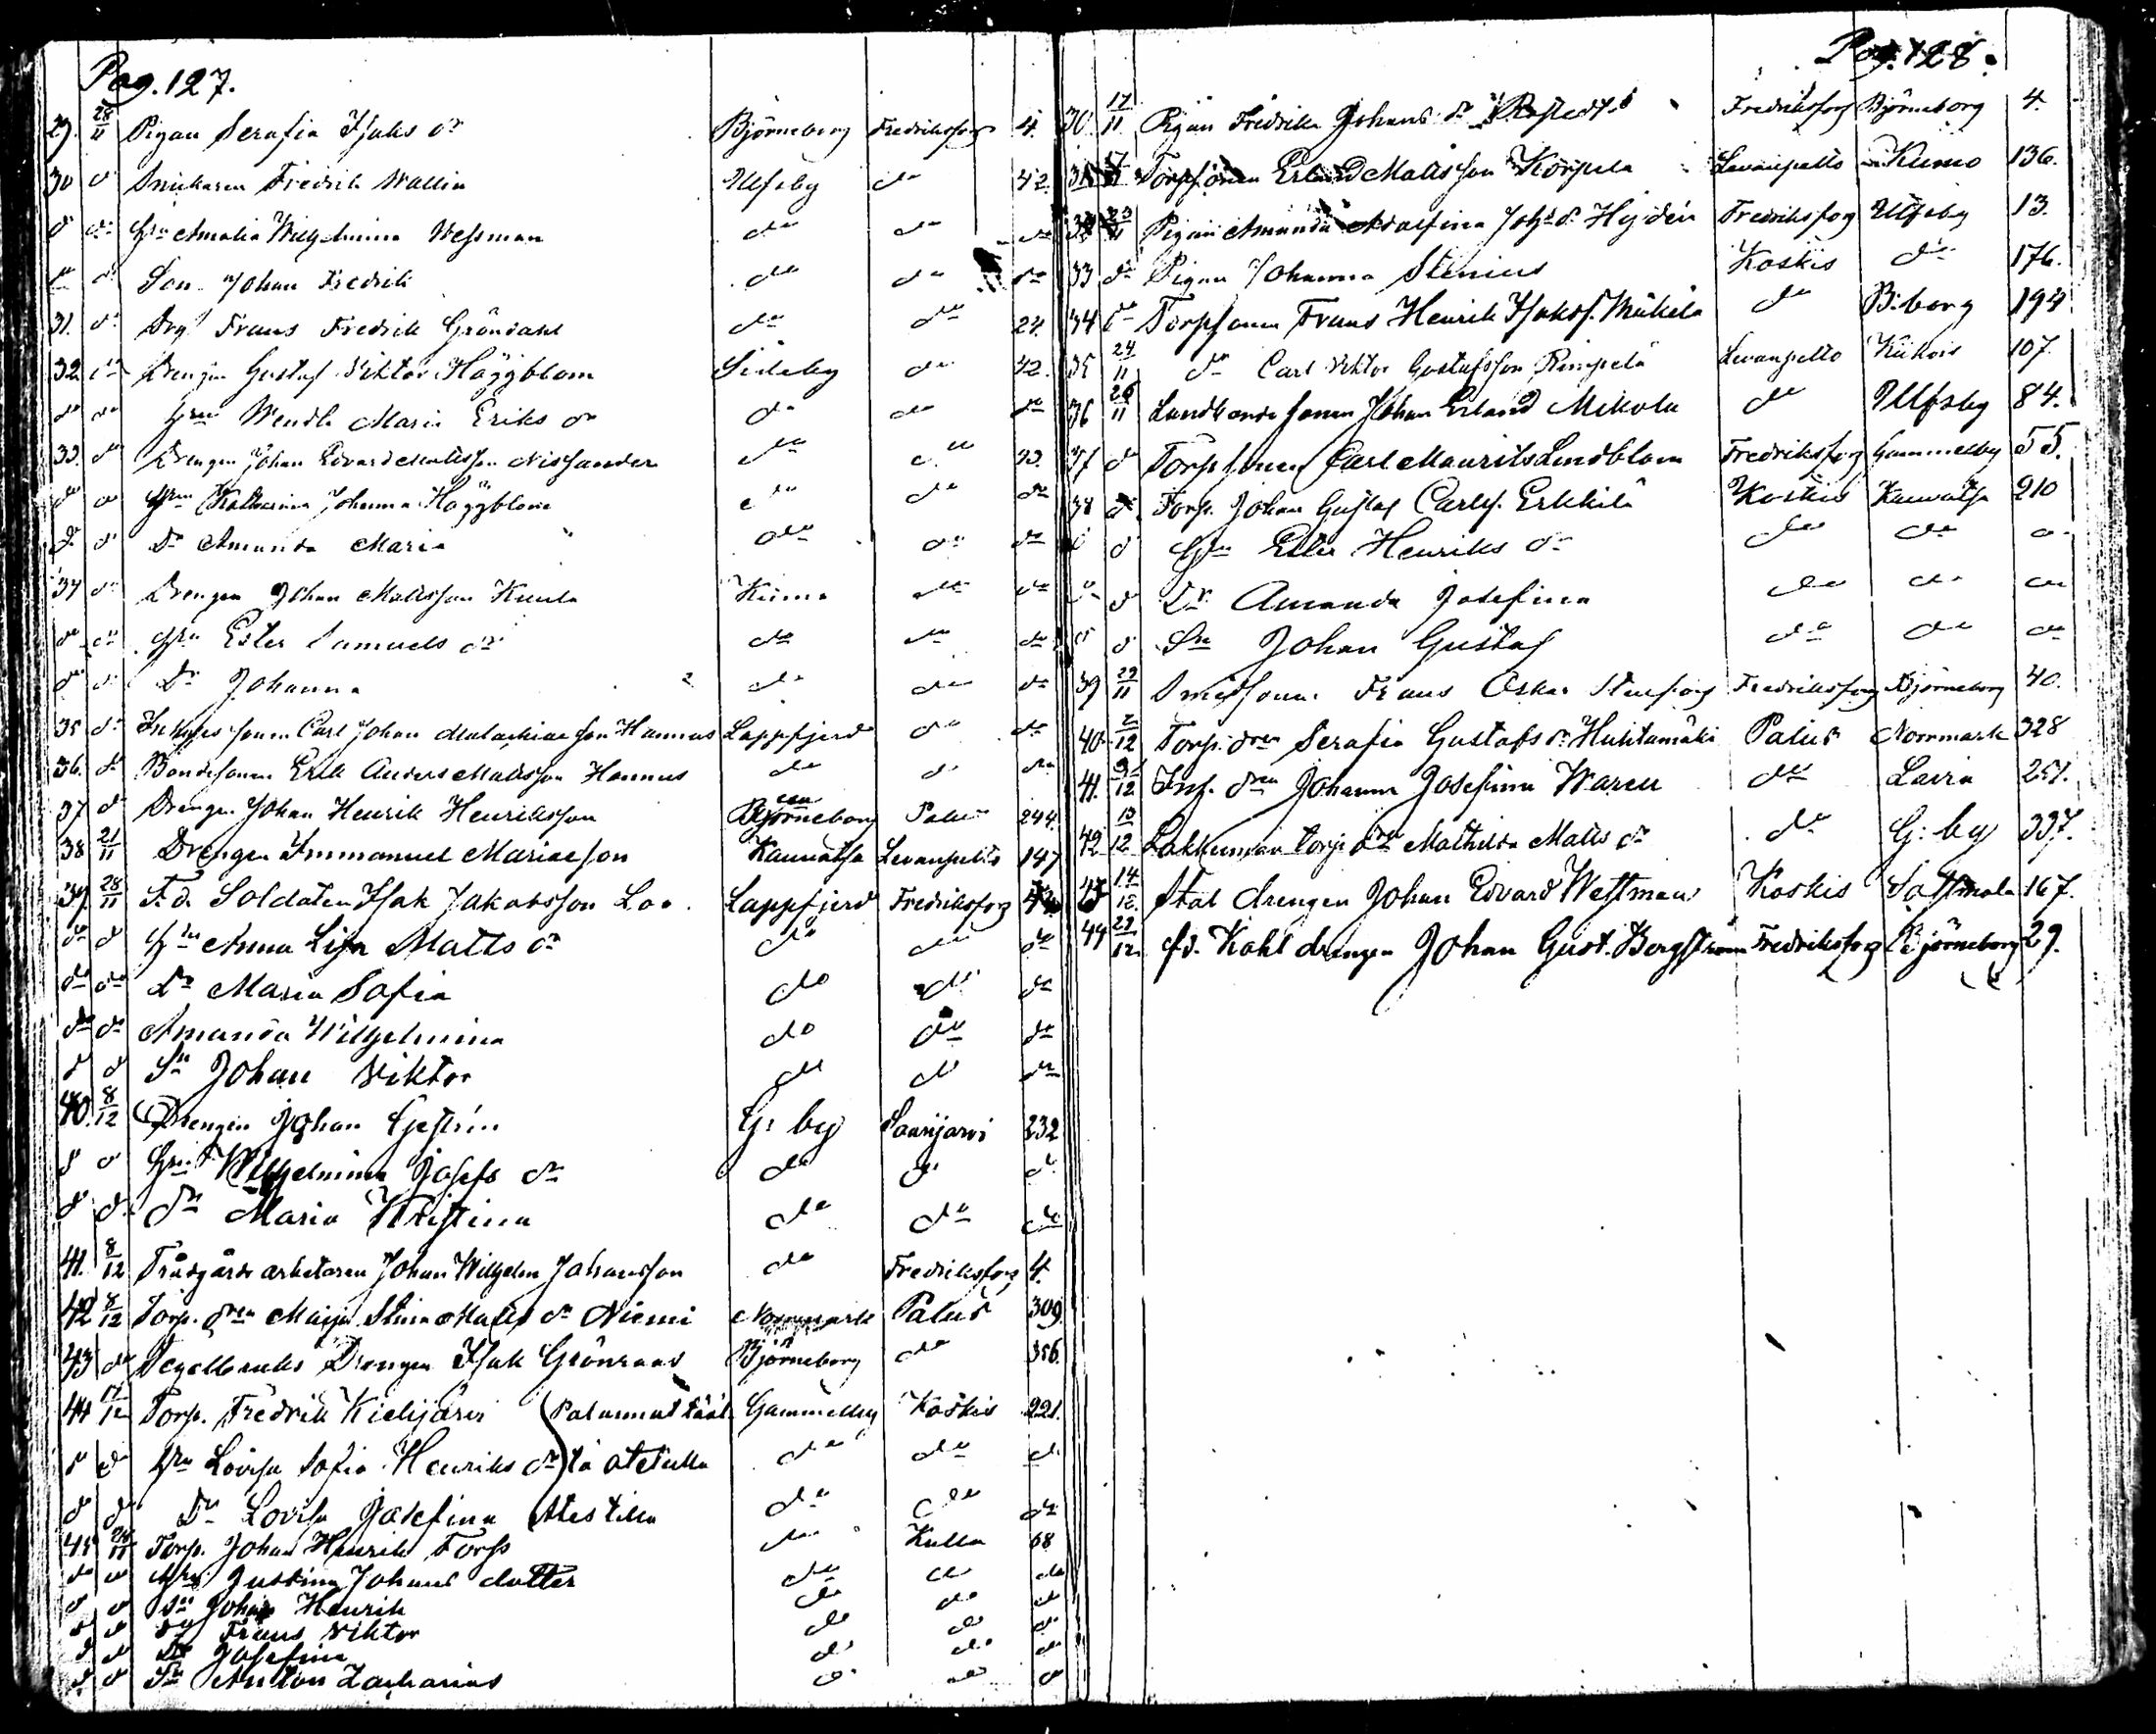 Pag. 127.
29. 28/11 Pigan Serafia Isaks dr Björneborg Fredriksfors 4.
30 do Snickaren Fredrik Wallin Ulfsby do 42.
do do Hru Amalia Wilhelmina Wessman do do do
do do Son Johan Fredrik do do do
31. do Drg Frans Fredrik Gröndahl do do 24.
32 do Drengen Gustaf Viktor Häggblom Sideby do 42.
do do Hru Wendla Maria Eriks dr do do do
33. do Drengen Johan Edvard Mattsson Nissander do do 33.
do do Hru Katharina Johanna Häggblom do do do
do do Dr Amanda Maria do do do
34 do Drengen Johan Mattsson Kuula Kumo do do
do do Hru Ester Samuels dr do do do
do do Dr Johanna do do do
35 do Carl Johan Malachiae son Hannus Lappfjerd do do
36. do Bondesonen Erik Anders Mattsson Hannus do do do
37 do Drengen Johan Henrik Henriksson Björneborg Palus 244.
38 21/11 Drengen Immanuel Mariaeson Kauvatsa Levanpelto 147
39. 28/11 F.d. Soldaten Isak Jakobsson Loo. Lappfjerd Fredriksfors
do do Hru Anna Lisa Matts dr do do do
do do Dr Maria Sofia do do do
do do Amanda Wilhelmina do do do
do do Sn Johan Viktor do do do
40. 8/12 Drengen Johan Gestrin G: by Saarijarvi 232
do do Hru Wilhelmina Josefs dr do do do
do do Dr Maria Kristina do do do
41. 8/12 Trädgårds arbetaren Johan Wilhelm Johansson do Fredriksfors 4.
42 8/12 Torp. dren Maija Stina Matts dr Niemi Norrmark Palus 309
43 do Tegelbruks Drengen Isak Grönroos Björneborg do 356.
44 17/12 Torp. Fredrik Kielijärvi (Palannut tääl Gammelby Koskis 221.
do do Hru Lovisa Sofia Henriks dr tä otetulla do do do
do do Dr Lovisa Josefina Atestilla do do do
45 Torp. Johan Henrik Forss do Kulla 68
do do Hru Justina Johans dotter do do do
do do Sn Johan Henrik do do do
do do do Frans Viktor do do do
do do Dr Josefina do do do
do do Sn Anton Zacharias do do do
Pag. 128.
30. 17/11 Pigan Fredrika Johans dr Fredriksfors Björneborg 4.
31 Torpsonen Erland Matts son Korpela Levanpelto Kumo 136.
32 23/11 Pigan Amanda Adolfina Johs dr Hejdén Fredriksfors Ulfsby 13.
33 do Pigan Johanna Stenius Koskis do 176.
34 do Torpsonen Frans Henrik Isakss. Mäkelä do B:borg 194
35 24/11 do Carl Viktor Gustafsson Rimpelä Levanpelto Kiikois 107.
36 26/11 Landbondesonen Johan Erland Mikola do Ulfsby 84.
37 do Torpsonen Carl Maurits Lindblom Fredriksfors Gammelby 55.
38 do Torp. Johan Gustaf Carlss. Erkkilä Koskis Kauvatsa 210
do do Hru Ester Henriks dr do do do
do do Dr Amanda Josefina do do do
do do Sn Johan Gustaf do do do
39 29/11 Smedsonen Frans Oskar Stenfors Fredriksfors Björneborg 40.
40. 2/12 Torp. dren Serafia Gustafs dr Huhtamäki Palus Norrmark 328
41. 9/12 Insp. dren Johanna Josefina Waren do Lavia 251.
42 13/12 Lakkuman torp. dren Mathilda Matts dr do G: by 337.
43 14/12 Stal drengen Johan Edvard Westman Koskis Sastmola 167.
44 29/12 fd. Kohl drengen Johan Gust. Bergström Fredriksfors Björneborg 29.